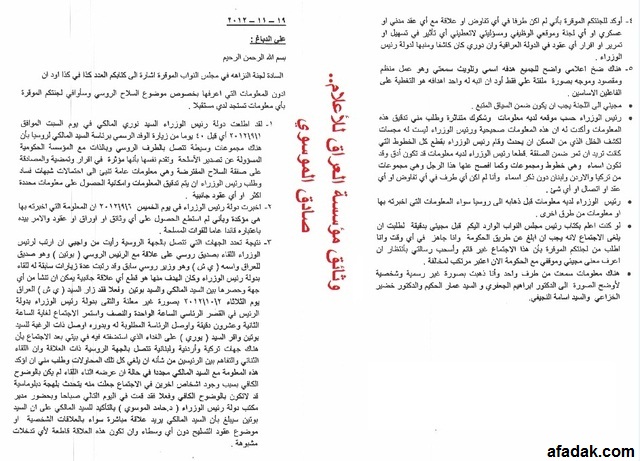 ١٩ – ١١ – ٢٠١٢
علي الدباغ :
بسم الله الرحمن الرحيم
السادة لجنة النزاهه في مجلس النواب الموقرة اشارة الى كتابكم العدد كذا كذا اود ان
ادون المعلومات التي اعرفها بخصوص موضوع السلاح الروسي وسأوافي لجنتكم الموقرة
بأي معلومات تستجد لدي مستقبلا .
١- لقد اطلعت دولة رئيس الوزراء السيد نوري المالكي في يوم السبت الموافق
أي قبل ٤٠ يوما من زيارة الوفد الرسمي برئاسة السيد المالكي لروسيا بأن
هناك مجموعات وسيطة تتصل بالطرف الروسي وبالذات مع المؤسسة الحكومية
المسؤولة عن تصدير الأسلحة وتقدم نفسها بأنها مؤثرة في اقرار وتمضية والمصادقة
على صفقة السلاح المفترضة وهي معلومات عامة تنبئ الى احتمالات شبهات فساد
وطلب رئيس الوزراء ان يتم تدقيق المعلومات وامكانية الحصول على معلومات محددة
اكثر او أي عقود جانبية .
٢- اخبرت دولة رئيس الوزراء في يوم الخميس ان المعلومة التي اخبرته بها
هي مؤكدة وبأني لم استطع الحصول على أي وثائق او اوراق او عقود والامر بيده
باعتباره قائدا عاما للقوات المسلحة .
٣- نتيجة تعدد الجهات التي تتصل بالجهة الروسية رأيت من واجبي ان ارتب لرئيس
الوزراء اللقاء بصديق روسي على علاقة مع الرئيس الروسي ( بوتين ) وهو صديق
للعراق واسمه ( ي ش ) وهو وزير روسي سابق وقد رتبت عدة زيارات سابقة له للقاء
بدولة رئيس الوزراء وكان الهدف منها هو قطع أي علاقة جانبية يمكن ان تنشأ من أي
جهة وحصرها بين السيد المالكي والسيد بوتين وفعلا فقد زار السيد ( ي ش ) العراق
يوم الثلاثاء ٢٠١٢\١٠\٢ بصورة غير معلنة والتقى بدولة رئيس الوزراء بدولة
الرئيس في القصر الرئاسي الساعة الواحدة والنصف واستمر الاجتماع لغاية الساعة
الثانية وعشرون دقيقة واوصل الرئاسة المطلوبة له وبدوره اوصل ذات الرغبة للسيد
بوتين واقر السيد ( يوري ) على الغداء الذي استضفته فيه في بيتي بعد الاجتماع بأن
هناك جهات تركية وأردنية ولبنانية تتصل بالجهة الروسية ذات العلاقة وان اللقاء
الثنائي والتفاهم بين الرئيسين من شأنه ان يلغي كل تلك المحاولات وطلب مني ان اؤكد
هذه المعلومة مع السيد المالكي مجددا في حالة ان عرضه اثناء اللقاء لم يكن بالوضوح
الكافي بسبب وجود اشخاص اخرين في الاجتماع جعلت منه يتحدث بلهجة دبلوماسية
قد لاتكون بالوضوح الكافي وفعلا فقد قمت في اليوم التالي صباحا وبحضور مدير
مكتب دولة رئيس الوزراء ( د.حامد الموسوي ) بالتأكيد للسيد المالكي على ان السيد
بوتين سيبلغ بأن السيد المالكي يريد علاقة مباشرة سواء بالعلاقات الشخصية او
موضوع عقود التسليح دون أي وسطاء وان تكون هذه العلاقة قاطعة لأي تدخلات
مشبوهة .
٤- أؤكد للجنتكم الموقرة بأني لم اكن طرفا في أي تفاوض او علاقة مع أي عقد مدني او
عسكري او أي لجنة وموقعي الوظيفي ومسؤليتي لاتعطيني أي تأثير في تسهيل او
تمرير او اقرار أي عقود في الدولة العراقية وان دوري كان كاشفا ومنبها لدولة رئيس
الوزراء .
• هناك ضخ اعلامي واضح للجميع هدفه اسمي وتلويث سمعتي وهو عمل منظم
ومقصود وموجه بصورة ملفتة علي فقد اود ان انبه له واحد اهدافه هو التغطية على
الفاعلين الاساسين .
• مجيئي الى اللجنة يجب ان يكون ضمن السياق المتبع .
• رئيس الوزراء حسب موقعه لديه معلومات وشكوك متناثرة وطلب مني تدقيق هذه
المعلومات وأكدت له ان هذه المعلومات صحيحية ورئيس الوزراء ليست له مجسات
لكشف الخلل الذي من الممكن ان يحدث وقام رئيس الوزراء بقطع كل الخطوط التي
كانت تريد ان تمر ضمن الصفقة. قطعا رئيس الوزراء لديه معلومات قد تكون أدق وقد
تكون اسماء وهي خطوط ومجموعات وكما افصح عنها هذا الرجل وهي مجموعة
من تركيا والاردن ولبنان دون ذكر اسماء وأنا لم اكن أي طرف في أي تفاوض او أي
عقد او اتصال او أي شئ .
• رئيس الوزراء لديه معلومات قبل ذهابه الى روسيا سواء المعلومات التي اخبرته بها
او معلومات من طرق اخرى .
• لو كنت اعلم بكتاب رئيس مجلس النواب الوارد اليكم قبل مجيئي بدقيقة لطلبت ان
يلغى الاجتماع لانه يجب ان ابلغ عن طريق الحكومة وانا جاهز في أي وقت وانا
اطلب من لجنتكم الموقرة بأن هذا الاجتماع غير قائم وأسحب رسالتي بأنتظار ان
اعرف معنى مجيئي وموقفي مع الحكومة الان اعتبر مرتكب لمخالفة .
• هناك معلومات سمعت من طرف واحد وأنا ذهبت بصورة غير رسمية وشخصية
لأوضح الصورة الى الدكتور ابراهيم الجعفري و السيد عمار الحكيم والدكتور خضير
الخزاعي والسيد اسامة النجيفي.
وثائق مؤسسة العراق للأعلام..
صادق الموسوي
afadak.com